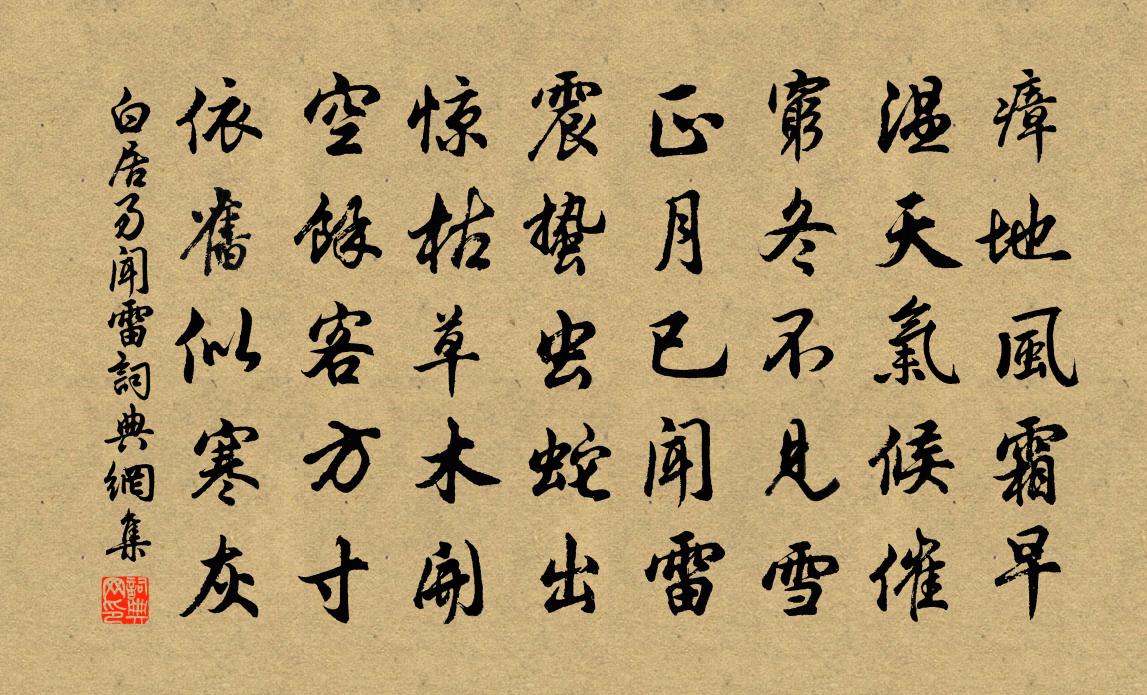 瘴地風霜早
温天氣候催
窮冬不見雪
正月已聞雷
震蛰虫蛇出
惊枯草木開
空餘客方寸
依舊似寒灰
白居易聞雷詞典網集
詞典
网印